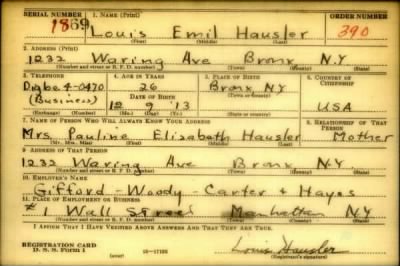 SERIAL NUMBER 1. NAME (Print) ORDER NUMBER
1869 Louis Emil Hausler 390
(First) (Middle) (Last)
2. ADDRESS (Print)
1232 Waring Ave Bronx N.Y
(Number and street or R. F. D. number) (Town) (County) (State)
3. TELEPHONE 4. AGE IN YEARS 5. PLACE OF BIRTH 6. COUNTRY OF CITIZENSHIP
Digbe 4-0470 26 Bronx NY
DATE OF BIRTH (Town or county)
(Business) 12 9 '13 USA
(Exchange) (Number) (Mo.) (Day) (Yr.) (State or country)
7. NAME OF PERSON WHO WILL ALWAYS KNOW YOUR ADDRESS 8. RELATIONSHIP OF THAT PERSON
Mrs Pauline Elizabeth Hausler Mother
(Mr., Mrs., Miss) (First) (Middle) (Last)
9. ADDRESS OF THAT PERSON
1232 Waring Ave Bronx N-Y
(Number and street or R. F. D. number) (Town) (County) (State)
10. EMPLOYER'S NAME
Gifford - Woody - Carter & Hays
11. PLACE OF EMPLOYMENT OR BUSINESS
# 1 Wall Street Manhattan NY
(Number and street or R. F. D. number) (Town) (County) (State)
I AFFIRM THAT I HAVE VERIFIED ABOVE ANSWERS AND THAT THEY ARE TRUE.
REGISTRATION CARD Louis Hausler
D. S. S. Form 1 (over) (Registrant's signature)